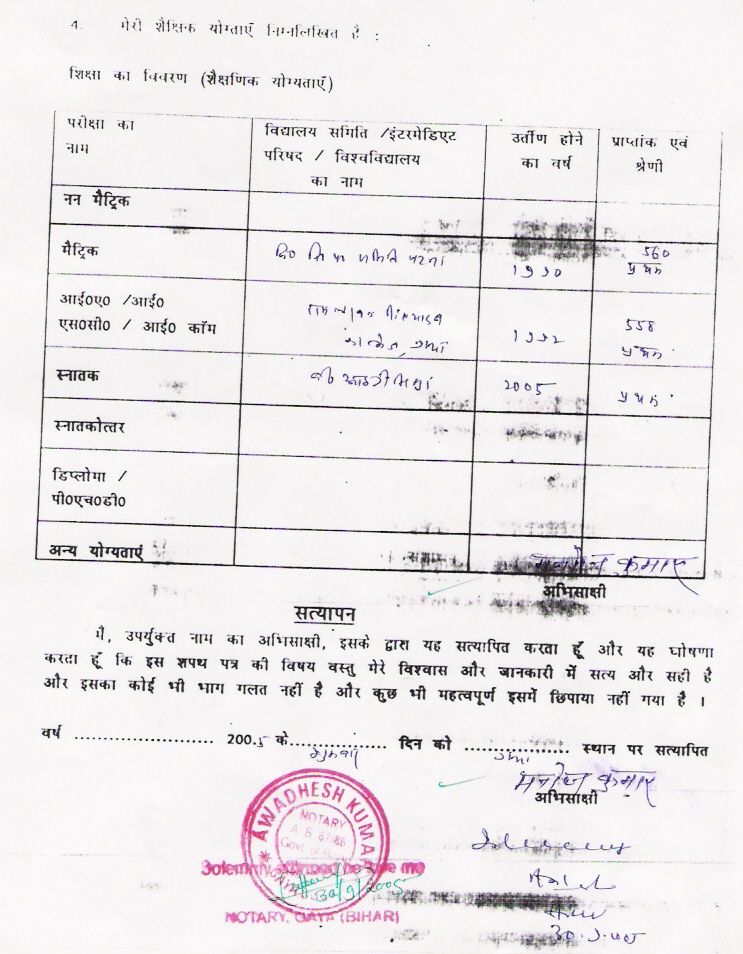 4. मेरी शैक्षिक योग्ताएँ निम्नलिखित है :
शिक्षा का विवरण (शैक्षणिक योग्यताएँ)
परीक्षा का नाम
विद्यालय समिति /इंटरमेडिएट
परिषद / विश्वविद्यालय
का नाम
उर्तीण होने
का वर्ष
प्राप्तांक एवं
श्रेणी
नन मैट्रिक
मैट्रिक
पटना
1990
560
प्रथम
आई०ए० /आई०
एस०सी० / आई० कॉम
कालेज, गया
1992
558
प्रथम
स्नातक
2005
प्रथम
स्नातकोत्तर
डिप्लोमा /
पी०एच०डी०
अन्य योग्यताएं
कुमार
अभिसाक्षी
सत्यापन
मैं, उपर्युक्त नाम का अभिसाक्षी, इसके द्वारा यह सत्यापित करता हूँ और यह घोषणा
करता हूँ कि इस शपथ पत्र की विषय वस्तु मेरे विश्वास और जानकारी में सत्य और सही है
और इसका कोई भी भाग गलत नहीं है और कुछ भी महत्वपूर्ण इसमें छिपाया नहीं गया है ।
वर्ष ........................ 2005 के................. दिन को .................. स्थान पर सत्यापित
गया
कुमार
अभिसाक्षी
AWADHESH KUMA
NOTARY
Solemnly affirmed before me
30/9/2005
NOTARY, GAYA (BIHAR)